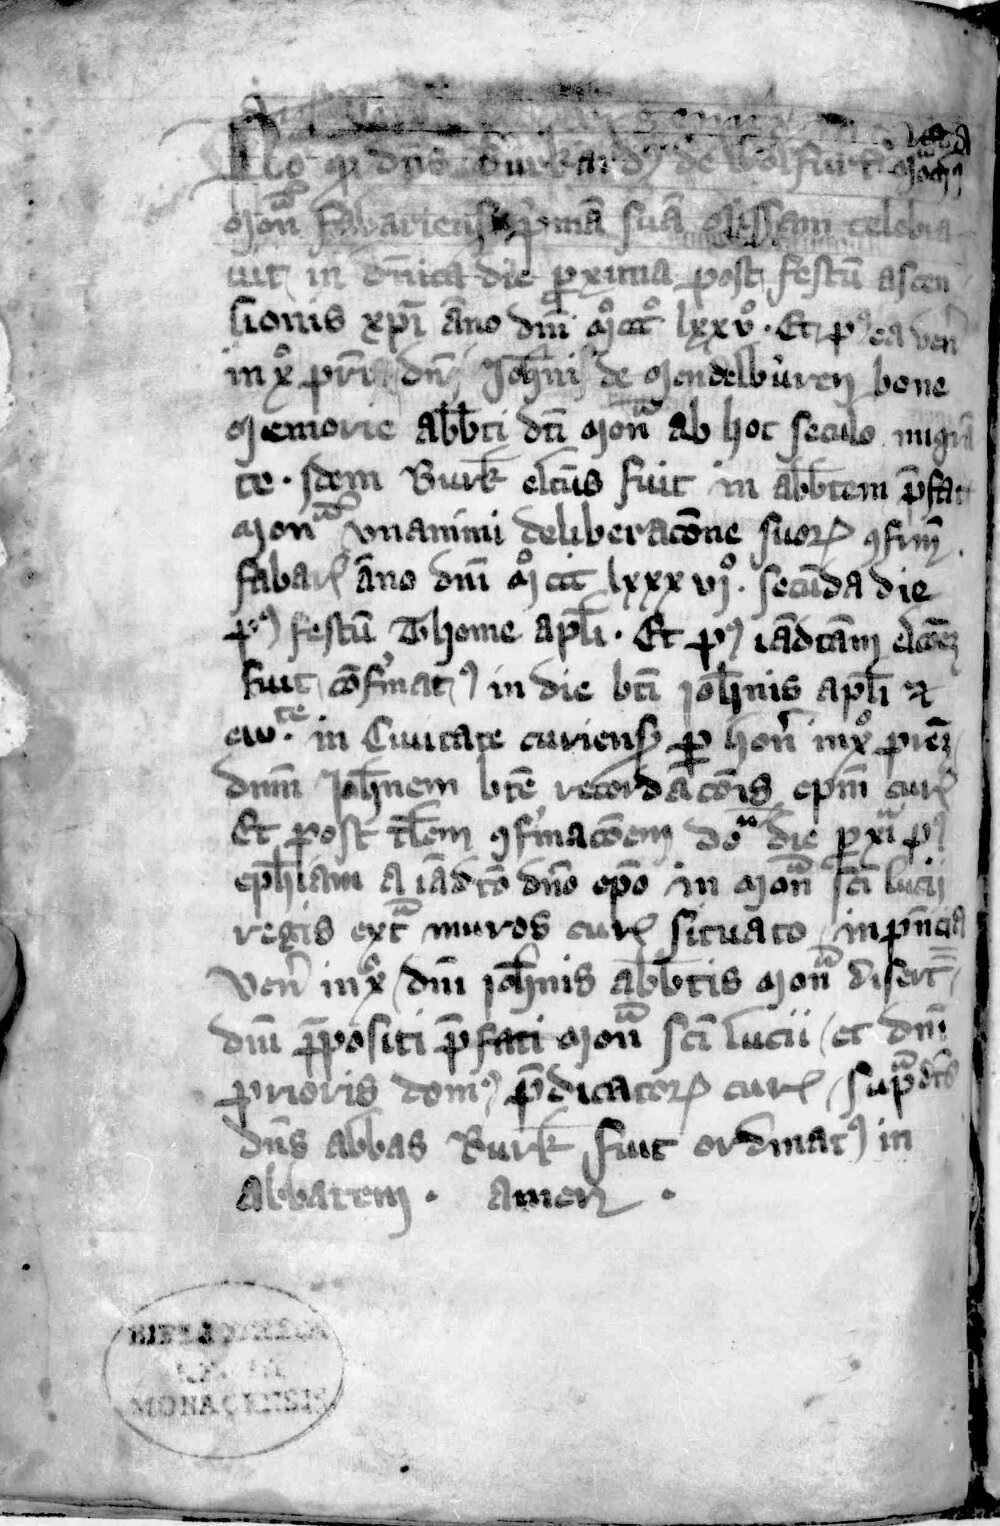 No q dn̄s Burkardꝯ de Wolfurt moꝯ
mon̄ fabarienſ p̄mā ſuā miſſam celebra
uit in dn̄ica die ꝓxima poſt feſtū aſcen
ſionis xp̄i āno dn̄i mͦccc lxxvͦ · Et pꝰea ven̄
in xͦ pr̄i dn̄i Joh̄nis de Mendelbúren bone
memorie abb̄ti dc̄i mon̄ ab hoc ſeculo migrā
te · Idem Burk̄ elcūs fuit in abb̄tem p̄fati
mon̄ vnanimi deliberacōne ſuoꝝ ꝯfrm̄
fabar̄ āno dn̄i mͦ ccc lxxxvjͦ · ſecūda die
pꝰ feſtū Thome apl̄i · Et pꝰ iādcām elcōem
fuit cōfirmatꝰ in die bt̄i Joh̄nis apl̄i et
ew̄te · in Ciuitate curienſ ꝑ hon̄ in xͦ pr̄em
dn̄m Joh̄nem bt̄e recordacōis ep̄m cur̄
Et poſt tl̄em ꝯfirmacōem dō die ꝓxiͣ pꝰ
eph̄iam a iādcō dn̄o ep̄o in mon̄ ſc̄i lucij
regis extͣ muros cur̄ ſituato in p̄ncia
ven̄ in xͦ dn̄i Joh̄nis abb̄tis mon̄ diſert̄
dn̄i p̄poſiti p̄fati mon̄ ſc̄i lucii et dn̄i
prioris domꝰ p̄dicatoꝝ cur̄ ſupͣdc̄s
dn̄s abbas Burk̄ fuit ordinatꝰ in
abbatem · amen ·
BIBLIOTHECA
REGIA
MONACENSIS